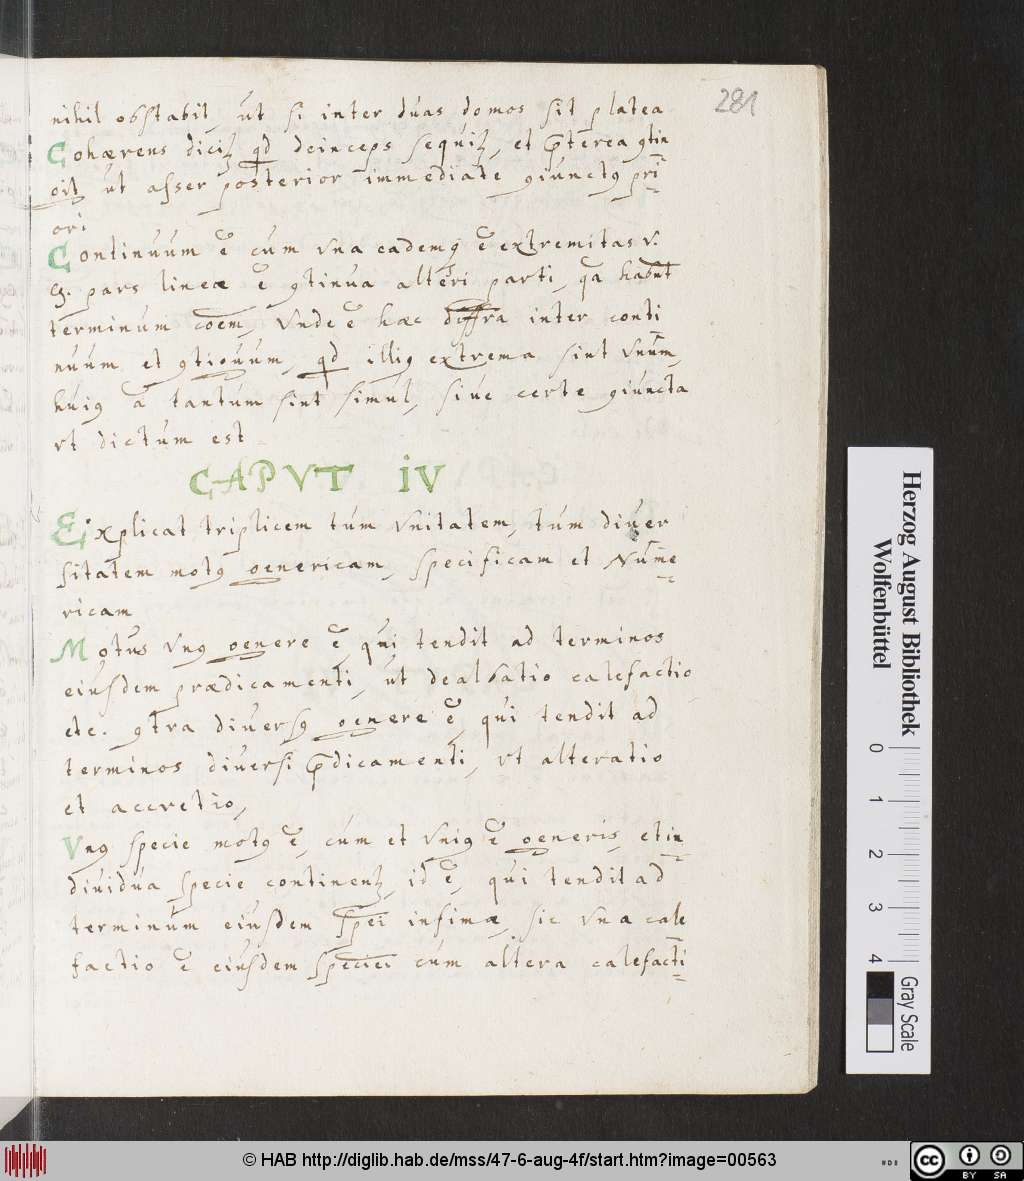 281
nihil obstabit, ut si inter duas domos sit platea
Cohærens diciꝫ qd deinceps sequiꝫ, et p̃terea ꝯtin
git, ut asser posterior immediate ꝯiunctꝰ pri=
ori
Continuum ẽ cum vna eademq ẽ extremitas v.
g. pars lineæ ẽ ꝯtinua alteri parti, qa habn̄t
terminum cōem, vnde ẽ hæc diff̄ra inter conti
nuum et ꝯtiguum, qd illiꝰ extrema sint vnum,
huiꝰ ã tantum sint simul, siue certe ꝯiuncta
vt dictum est
CAPVT IV
Explicat triplicem tum vnitatem, tum diuer
sitatem motꝰ genericam, specificam et Nume=
ricam
Motus vnꝰ genere ẽ, qui tendit ad terminos
eiusdem prædicamenti, ut dealbatio calefactio
etc. ꝯtra diuersꝰ genere ẽ, qui tendit ad
terminos diuersi p̃dicamenti, vt alteratio
et accretio,
Vnꝰ specie motꝰ ẽ, cum et vniꝰ ẽ generis, et in=
diuidua specie continenꝫ, id ẽ, qui tendit ad
terminum eiusdem sp̄ei infimæ, sic vna cale
factio ẽ eiusdem speciei cum altera calefacti=
Herzog August Bibliothek
Wolfenbüttel
0 1 2 3 4
Gray Scale
© HAB http://diglib.hab.de/mss/47-6-aug-4f/start.htm?image=00563
cc BY SA